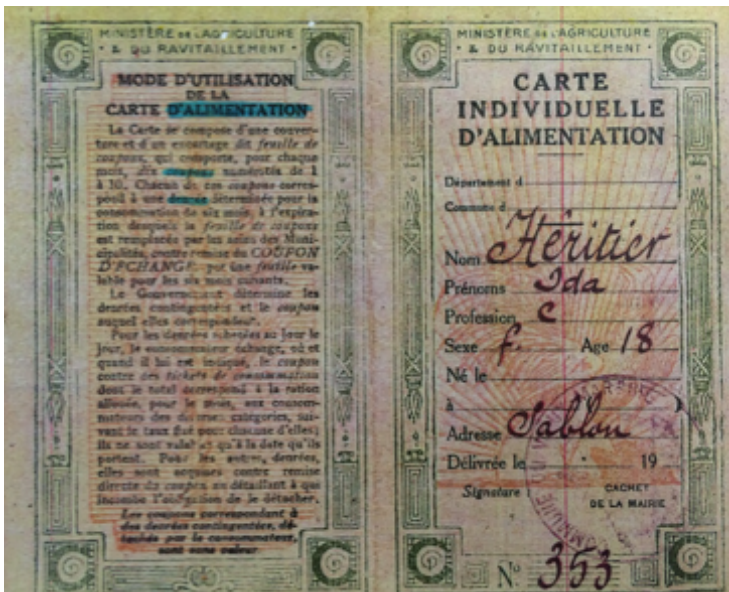 MINISTÈRE DE L'AGRICULTURE
• & DU RAVITAILLEMENT •
MODE D'UTILISATION
DE LA
CARTE D'ALIMENTATION
La Carte se compose d'une couver-
ture et d'un encartage dit feuille de
coupons, qui comporte, pour chaque
mois, dix coupons numérotés de 1
à 10. Chacun de ces coupons corres-
pond à une denrée déterminée pour la
consommation de six mois, à l'expira-
tion desquels la feuille de coupons
est remplacée par les soins des Muni-
cipalités, contre remise du COUPON
D'ÉCHANGE, par une feuille va-
lable pour les six mois suivants.
Le Gouvernement détermine les
denrées contingentées et le coupon
auquel elles correspondent.
Pour les denrées achetées au jour le
jour, le consommateur échange, où et
quand il lui est indiqué, le coupon
contre des tickets de consommation
dont le total correspond à la ration
allouée, pour le mois, aux consom-
mateurs des diverses catégories, sui-
vant le taux fixé pour chacune d'elles;
ils ne sont valables qu'à la date qu'ils
portent. Pour les autres, denrées,
elles sont acquises contre remise
directe du coupon au détaillant à qui
incombe l'obligation de le détacher.
Les coupons correspondant à
des denrées contingentées, dé-
tachés par le consommateur,
sont sans valeur
MINISTÈRE DE L'AGRICULTURE
• & DU RAVITAILLEMENT •
CARTE
INDIVIDUELLE
D'ALIMENTATION
Département d
Commune d
Nom Héritier
Prénoms Ida
Profession C
Sexe f. Age 18
Né le
à
Adresse Sablon
Délivrée le 19
Signature : CACHET
DE LA MAIRIE
N° 353